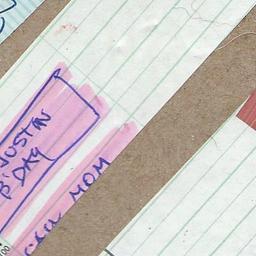 JUSTIN
B'DAY
CALL MOM